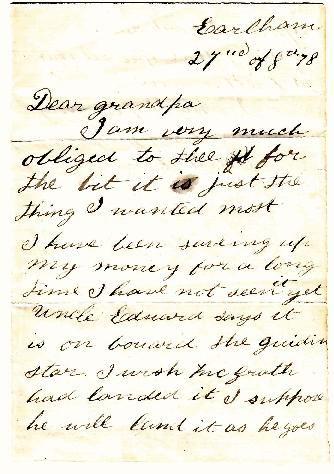 Earlham
27nd of 8th 78
Dear grandpa
I am very much
obliged to thee for
the bit it is just the
thing I wanted most
I have been saveing up
my money for a long
time I have not seen it yet
Uncle Edward says it
is on bouard the guidin
star I wish McGrath
had landed it I suppose
he will land it as he goes